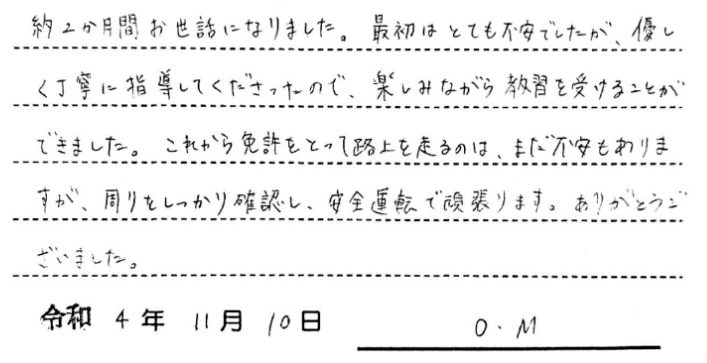 約2か月間お世話になりました。最初はとても不安でしたが、優し
く丁寧に指導してくださったので、楽しみながら教習を受けることが
できました。これから免許をとって路上を走るのは、まだ不安もありま
すが、周りをしっかり確認し、安全運転で頑張ります。ありがとうご
ざいました。
令和 4 年 11月 10日 O.M